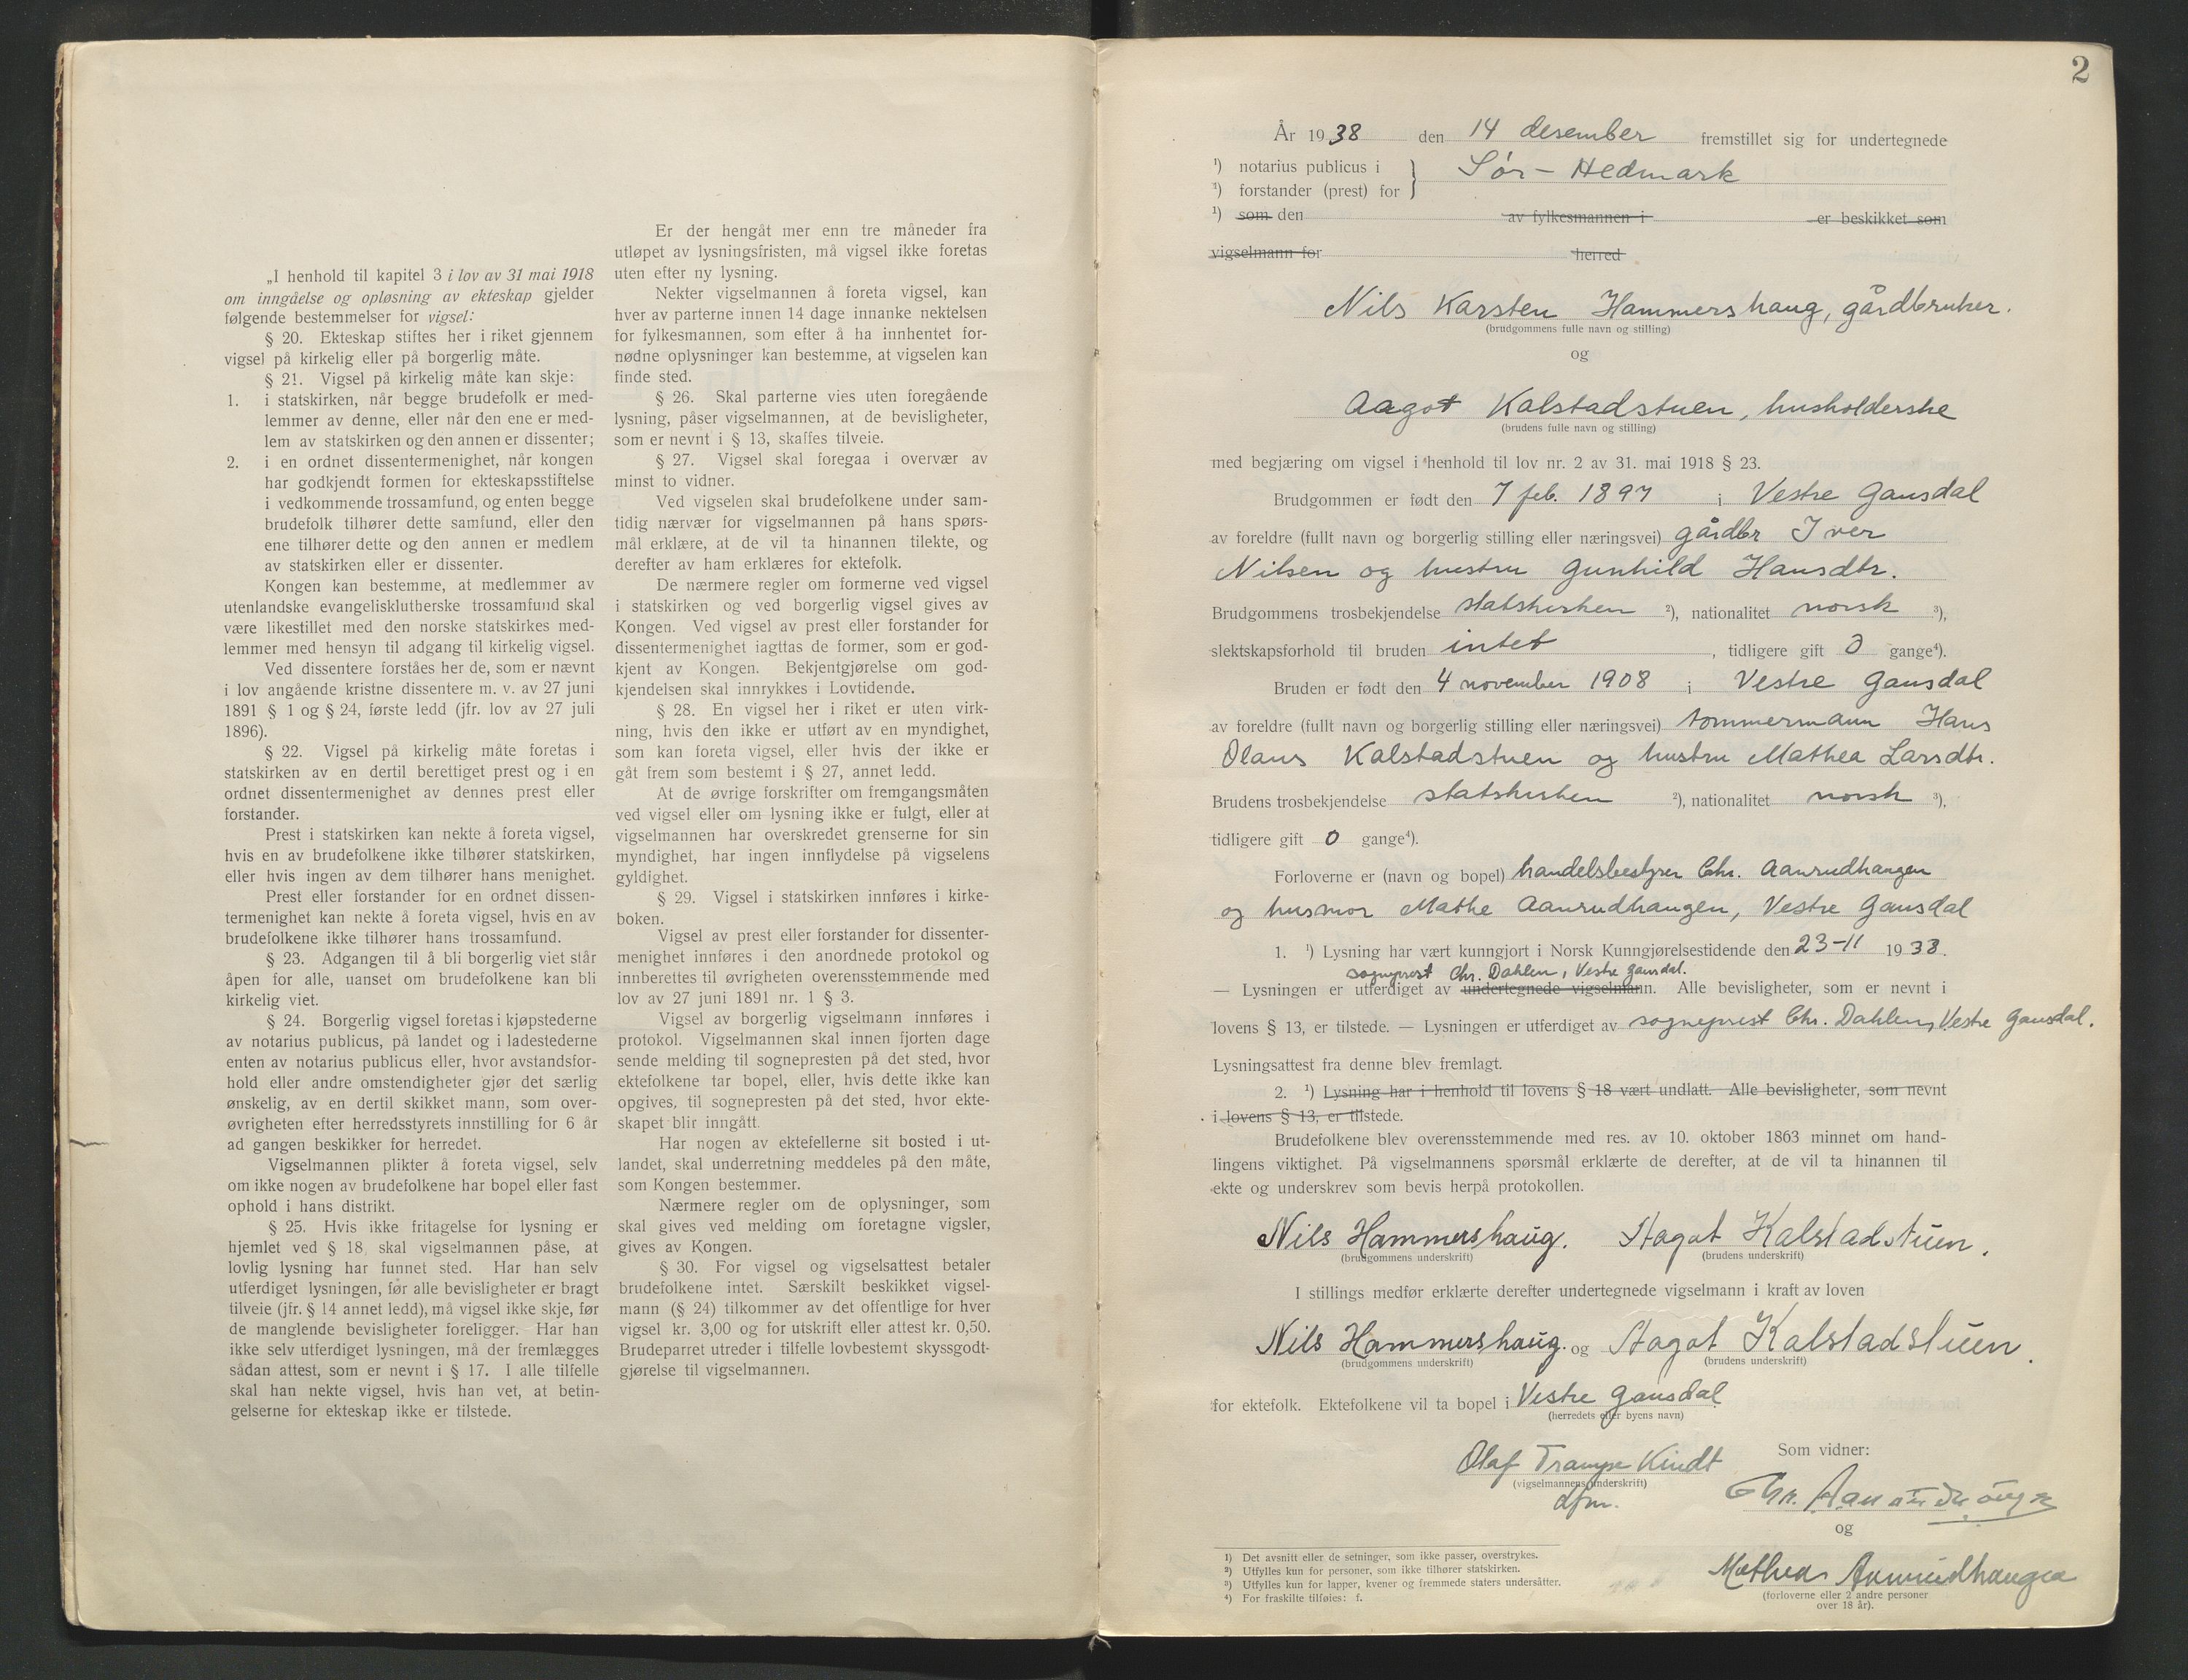 „I henhold til kapitel 3 i lov av 31 mai 1918
om inngåelse og opløsning av ekteskap gjelder
følgende bestemmelser for vigsel:
§ 20. Ekteskap stiftes her i riket gjennem
vigsel på kirkelig eller på borgerlig måte.
§ 21. Vigsel på kirkelig måte kan skje:
1. i statskirken, når begge brudefolk er med-
lemmer av denne, eller når den ene er med-
lem av statskirken og den annen er dissenter;
2. i en ordnet dissentermenighet, når kongen
har godkjendt formen for ekteskapsstiftelse
i vedkommende trossamfund, og enten begge
brudefolk tilhører dette samfund, eller den
ene tilhører dette og den annen er medlem
av statskirken eller er dissenter.
Kongen kan bestemme, at medlemmer av
utenlandske evangelisklutherske trossamfund skal
være likestillet med den norske statskirkes med-
lemmer med hensyn til adgang til kirkelig vigsel.
Ved dissentere forståes her de, som er nævnt
i lov angående kristne dissentere m. v. av 27 juni
1891 § 1 og § 24, første ledd (jfr. lov av 27 juli
1896).
§ 22. Vigsel på kirkelig måte foretas i
statskirken av en dertil berettiget prest og i en
ordnet dissentermenighet av dennes prest eller
forstander.
Prest i statskirken kan nekte å foreta vigsel,
hvis en av brudefolkene ikke tilhører statskirken,
eller hvis ingen av dem tilhører hans menighet.
Prest eller forstander for en ordnet dissen-
termenighet kan nekte å foreta vigsel, hvis en av
brudefolkene ikke tilhører hans trossamfund.
§ 23. Adgangen til å bli borgerlig viet står
åpen for alle, uanset om brudefolkene kan bli
kirkelig viet.
§ 24. Borgerlig vigsel foretas i kjøpstederne
av notarius publicus, på landet og i ladestederne
enten av notarius publicus eller, hvor avstandsfor-
hold eller andre omstendigheter gjør det særlig
ønskelig, av en dertil skikket mann, som over-
øvrigheten efter herredsstyrets innstilling for 6 år
ad gangen beskikker for herredet.
Vigselmannen plikter å foreta vigsel, selv
om ikke nogen av brudefolkene har bopel eller fast
ophold i hans distrikt.
§ 25. Hvis ikke fritagelse for lysning er
hjemlet ved § 18, skal vigselmannen påse, at
lovlig lysning har funnet sted. Har han selv
utferdiget lysningen, før alle bevisligheter er bragt
tilveie (jfr. § 14 annet ledd), må vigsel ikke skje, før
de manglende bevisligheter foreligger. Har han
ikke selv utferdiget lysningen, må der fremlægges
sådan attest, som er nevnt i § 17. I alle tilfelle
skal han nekte vigsel, hvis han vet, at betin-
gelserne for ekteskap ikke er tilstede.
Er der hengåt mer enn tre måneder fra
utløpet av lysningsfristen, må vigsel ikke foretas
uten efter ny lysning.
Nekter vigselmannen å foreta vigsel, kan
hver av parterne innen 14 dage innanke nektelsen
for fylkesmannen, som efter å ha innhentet for-
nødne oplysninger kan bestemme, at vigselen kan
finde sted.
§ 26. Skal parterne vies uten foregående
lysning, påser vigselmannen, at de bevisligheter,
som er nevnt i § 13, skaffes tilveie.
§ 27. Vigsel skal foregaa i overvær av
minst to vidner.
Ved vigselen skal brudefolkene under sam-
tidig nærvær for vigselmannen på hans spørs-
mål erklære, at de vil ta hinannen tilekte, og
derefter av ham erklæres for ektefolk.
De nærmere regler om formerne ved vigsel
i statskirken og ved borgerlig vigsel gives av
Kongen. Ved vigsel av prest eller forstander for
dissentermenighet iagttas de former, som er god-
kjent av Kongen. Bekjentgjørelse om god-
kjendelsen skal innrykkes i Lovtidende.
§ 28. En vigsel her i riket er uten virk-
ning, hvis den ikke er utført av en myndighet,
som kan foreta vigsel, eller hvis der ikke er
gåt frem som bestemt i § 27, annet ledd.
At de øvrige forskrifter om fremgangsmåten
ved vigsel eller om lysning ikke er fulgt, eller at
vigselmannen har overskredet grenserne for sin
myndighet, har ingen innflydelse på vigselens
gyldighet.
§ 29. Vigsel i statskirken innføres i kirke-
boken.
Vigsel av prest eller forstander for dissenter-
menighet innføres i den anordnede protokol og
innberettes til øvrigheten overensstemmende med
lov av 27 juni 1891 nr. 1 § 3.
Vigsel av borgerlig vigselmann innføres i
protokol. Vigselmannen skal innen fjorten dage
sende melding til sognepresten på det sted, hvor
ektefolkene tar bopel, eller, hvis dette ikke kan
opgives, til sognepresten på det sted, hvor ekte-
skapet blir inngått.
Har nogen av ektefellerne sit bosted i ut-
landet, skal underretning meddeles på den måte,
som Kongen bestemmer.
Nærmere regler om de oplysninger, som
skal gives ved melding om foretagne vigsler,
gives av Kongen.
§ 30. For vigsel og vigselsattest betaler
brudefolkene intet. Særskilt beskikket vigsel-
mann (§ 24) tilkommer av det offentlige for hver
vigsel kr. 3,00 og for utskrift eller attest kr. 0,50.
Brudeparret utreder i tilfelle lovbestemt skyssgodt-
gjørelse til vigselmannen.
2
År 1938 den 14 desember fremstillet sig for undertegnede
¹) notarius publicus i
¹) forstander (prest) for } Sør-Hedmark
¹) som den av fylkesmannen i er beskikket som
vigselmann for herred
Nils Karsten Hammershaug, gårdbruker.
(brudgommens fulle navn og stilling)
og
Aagot Kalstadstuen, husholderske
(brudens fulle navn og stilling)
med begjæring om vigsel i henhold til lov nr. 2 av 31. mai 1918 § 23.
Brudgommen er født den 7 feb. 1897 i Vestre Gausdal
av foreldre (fullt navn og borgerlig stilling eller næringsvei) gårdbr Iver
Nilsen og hustru Gunhild Hansdtr.
Brudgommens trosbekjendelse statskirken ²), nationalitet norsk ³),
slektskapsforhold til bruden intet, tidligere gift 0 gange⁴).
Bruden er født den 4 november 1908 i Vestre Gausdal
av foreldre (fullt navn og borgerlig stilling eller næringsvei) tømmermann Hans
Olaus Kalstadstuen og hustru Mathea Larsdtr.
Brudens trosbekjendelse statskirken ²), nationalitet norsk ³),
tidligere gift 0 gange⁴).
Forloverne er (navn og bopel) handelsbestyrer Chr. Aanrudhaugen
og husmor Mathe Aanrudhaugen, Vestre Gausdal
1. ¹) Lysning har vært kunngjort i Norsk Kunngjørelsestidende den 23-11 1938.
sogneprest Chr. Dahlen, Vestre Gausdal.
— Lysningen er utferdiget av undertegnede vigselmann. Alle bevisligheter, som er nevnt i
lovens § 13, er tilstede. — Lysningen er utferdiget av sogneprest Chr. Dahlen, Vestre Gausdal.
Lysningsattest fra denne blev fremlagt.
2. ¹) Lysning har i henhold til lovens § 18 vært undlatt. Alle bevisligheter, som nevnt
i lovens § 13, er tilstede.
Brudefolkene blev overensstemmende med res. av 10. oktober 1863 minnet om hand-
lingens viktighet. På vigselmannens spørsmål erklærte de derefter, at de vil ta hinannen til
ekte og underskrev som bevis herpå protokollen.
Nils Hammershaug. Aagot Kalstadstuen.
(brudgommens underskrift) (brudens underskrift)
I stillings medfør erklærte derefter undertegnede vigselmann i kraft av loven
Nils Hammershaug. og Aagot Kalstadstuen.
(brudgommens underskrift) (brudens underskrift)
for ektefolk. Ektefolkene vil ta bopel i Vestre Gausdal
(herredets eller byens navn)
Som vidner:
Olaf Trampe Kindt
(vigselmannens underskrift)
dfm.
Chr. Aanrudhaugen
og
Mathea Aanrudhaugen
(forloverne eller 2 andre personer
over 18 år).
¹) Det avsnitt eller de setninger, som ikke passer, overstrykes.
²) Utfylles kun for personer, som ikke tilhører statskirken.
³) Utfylles kun for lapper, kvener og fremmede staters undersåtter.
⁴) For fraskilte tilføies: f.